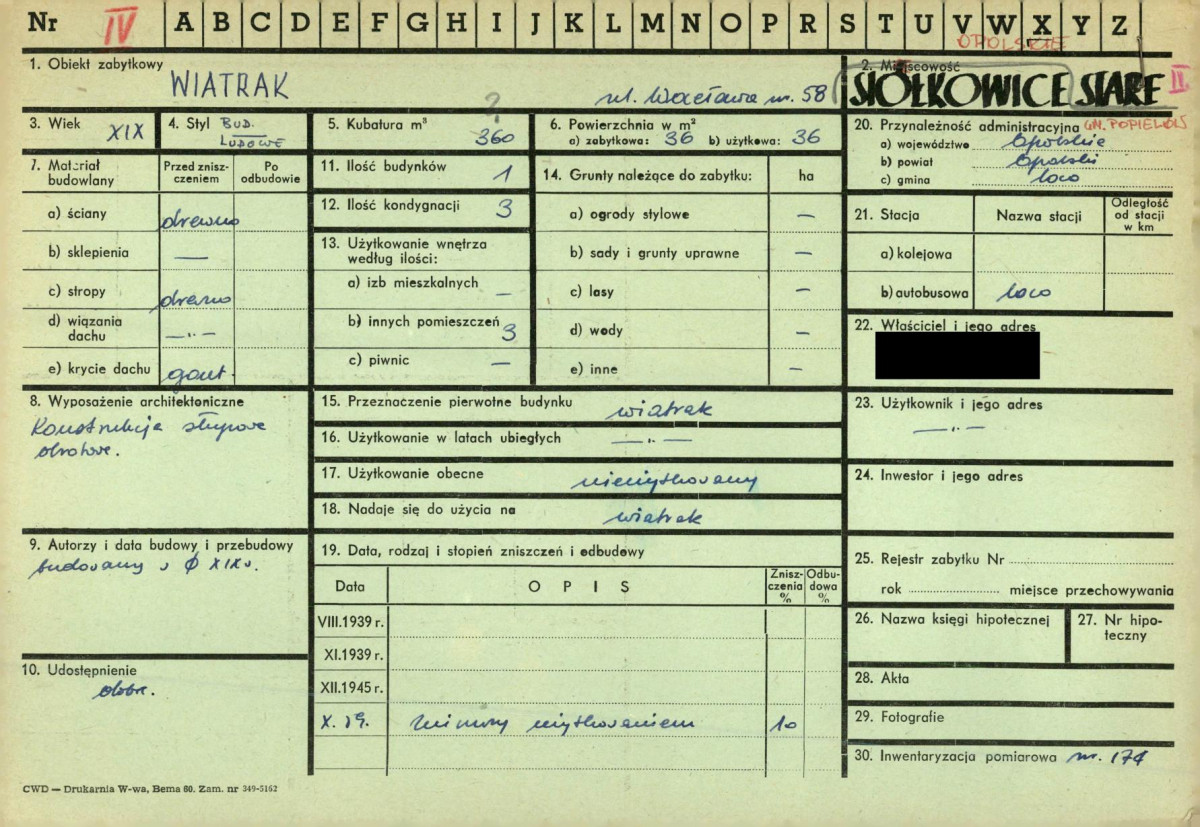 Nr IV A B C D E F G H I J K L M N O P R S T U V W X Y Z
OPOLSKIE
1. Obiekt zabytkowy
WIATRAK
ul. Wacława nr. 58
2. Miejscowość
SIOŁKOWICE STARE II.
3. Wiek XIX
4. Styl BUD. LUDOWE
5. Kubatura m³ ? 360
6. Powierzchnia w m²
a) zabytkowa: 36 b) użytkowa: 36
7. Materiał budowlany
Przed zniszczeniem
Po odbudowie
a) ściany drewno
b) sklepienia —
c) stropy drewno
d) wiązania dachu —„—
e) krycie dachu gont.
8. Wyposażenie architektoniczne
Konstrukcja słupowa
obrotowa.
9. Autorzy i data budowy i przebudowy
budowany
XIX w.
10. Udostępnienie
dobre.
11. Ilość budynków 1
12. Ilość kondygnacji 3
13. Użytkowanie wnętrza
według ilości:
a) izb mieszkalnych —
b) innych pomieszczeń 3
c) piwnic —
14. Grunty należące do zabytku: ha
a) ogrody stylowe —
b) sady i grunty uprawne —
c) lasy —
d) wody —
e) inne —
15. Przeznaczenie pierwotne budynku wiatrak
16. Użytkowanie w latach ubiegłych —„—
17. Użytkowanie obecne nieużytkowany
18. Nadaje się do użycia na wiatrak
19. Data, rodzaj i stopień zniszczeń i odbudowy
Data OPIS Zniszczenia % Odbudowa %
VIII.1939 r.
XI.1939 r.
XII.1945 r.
X. 59. użytkowaniem 10
20. Przynależność administracyjna GN. POPIELÓW
a) województwo Opolskie
b) powiat Opolski
c) gmina loco
21. Stacja Nazwa stacji Odległość od stacji w km
a) kolejowa
b) autobusowa loco
22. Właściciel i jego adres
23. Użytkownik i jego adres
—„—
24. Inwestor i jego adres
25. Rejestr zabytku Nr
rok miejsce przechowywania
26. Nazwa księgi hipotecznej
27. Nr hipoteczny
28. Akta
29. Fotografie
30. Inwentaryzacja pomiarowa nr. 174
CWD — Drukarnia W-wa, Bema 60. Zam. nr 349-5162